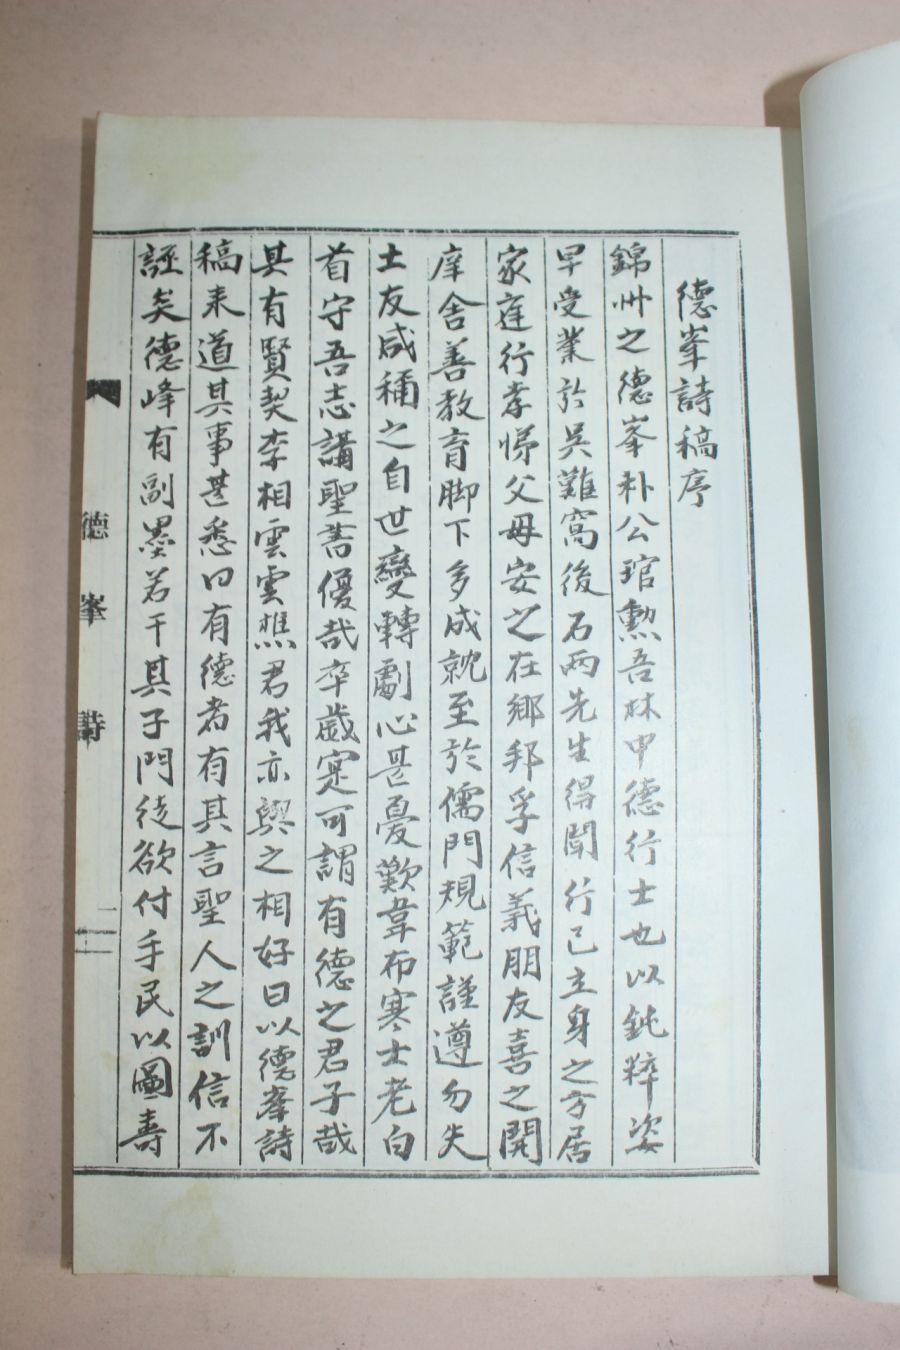 德峯詩稿序
錦州之德峯朴公琯勲吾林中德行士也以鈍粹姿
早受業於吳難窩後石兩先生得聞行己立身之方居
家庭行孝悌父母安之在鄉邦孚信義朋友喜之開
庠舍善教育脚下多成就至於儒門規範謹遵勿失
士友咸稱之自世變轉劇心甚憂歎韋布寒士老白
首守吾志講聖書優哉卒歲寔可謂有德之君子哉
其有賢契李相雲雲樵君我亦與之相好日以德峯詩
稿来道其事甚悉曰有德者有其言聖人之訓信不
誣矣德峰有副墨若干其子門徒欲付手民以圖壽
德峯詩
一